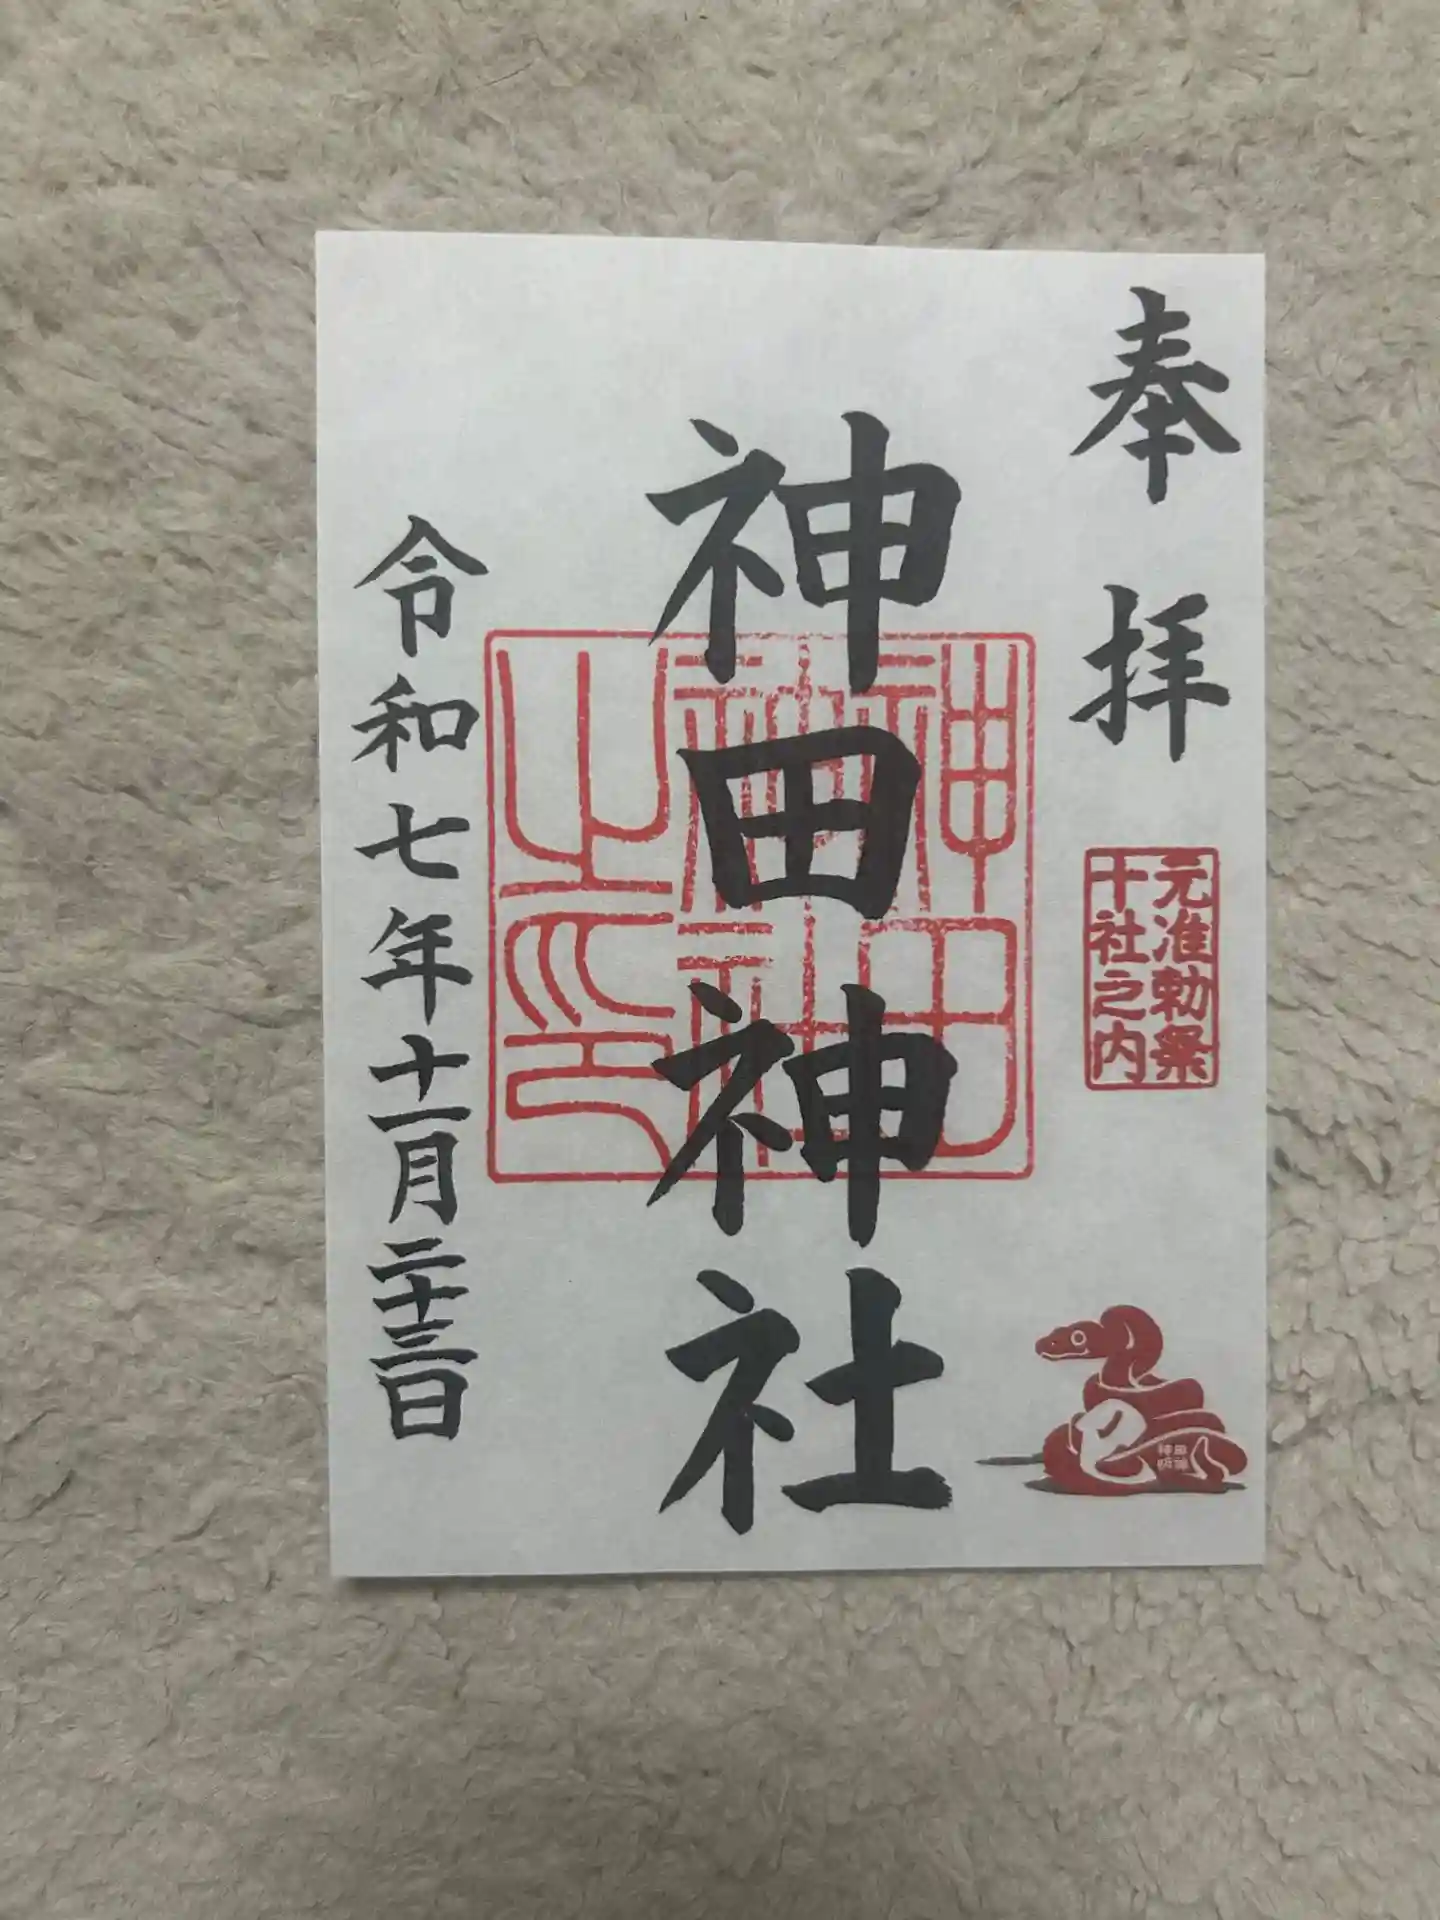 奉拝
元准勅祭
十社之内
巳
神田神社
神田神社之印
令和七年十一月二十三日